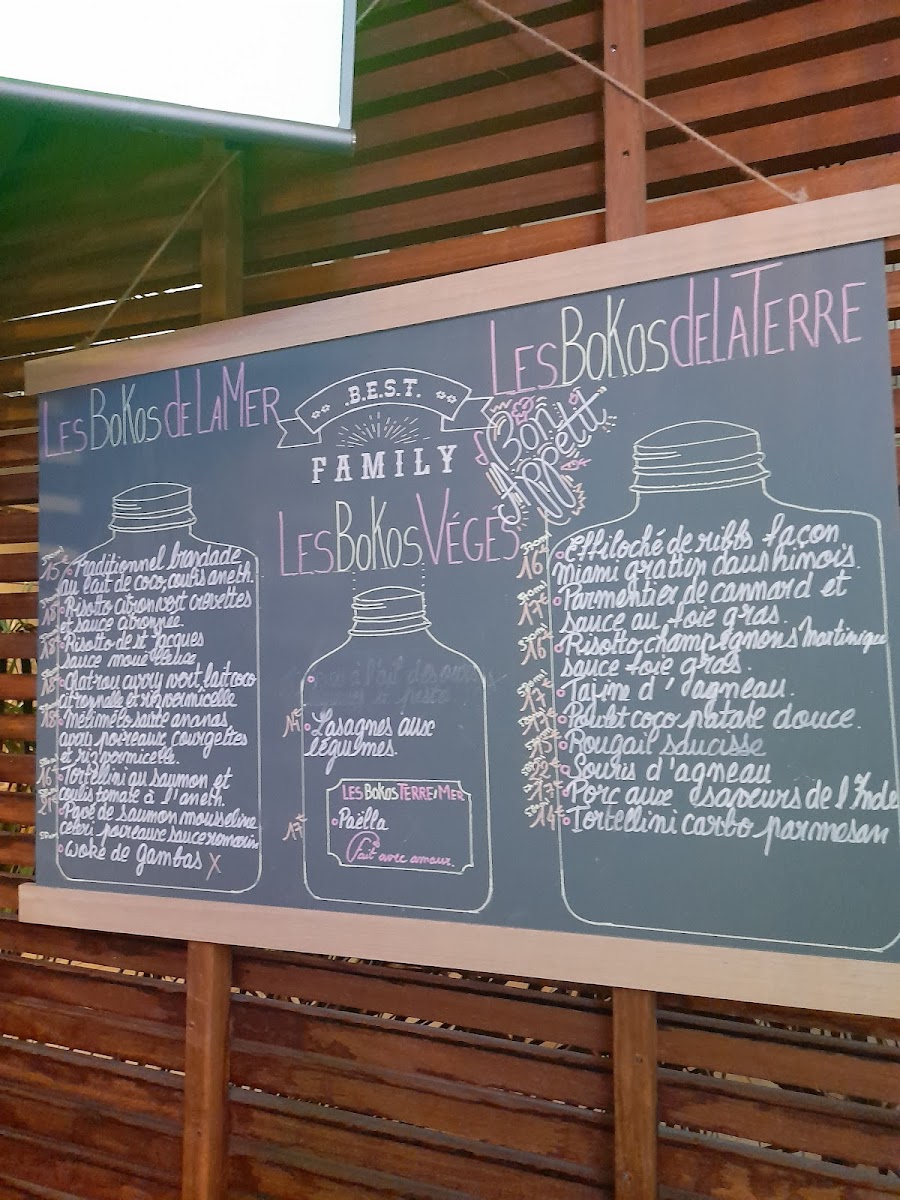 LES BOKOS DE LA MER
550ml
15€ Traditionnel brandade
au lait de coco, coulis aneth.
18€ Risotto citron vert crevettes
et sauce citronnée
18€ Risotto de st Jacques
sauce
18€ Chatrou curry vert, lait coco
citronnelle et riz vermicelle
18€ Mélimélo sauté ananas,
poireaux courgettes
et riz vermicelle.
16€ Tortellini au saumon et
coulis tomate à l'aneth.
Pavé de saumon mousseline
céleri poireaux sauce romarin
Woké de gambas X
B.E.S.T.
FAMILY
Bon
Appétit
LES BOKOS VÉGÉS
à l'ail des ours
pesto
14€ Lasagnes aux
légumes.
LES BOKOS TERRE/MER
17€ Paëlla
Fait avec amour.
LES BOKOS DE LA TERRE
550ml
16€ Effiloché de ribbs façon
miami gratin dauphinois.
550ml
17€ Parmentier de cannard et
sauce au foie gras.
550ml
16€ Risotto champignons Martinique
sauce foie gras.
550ml
17€ Tajine d'agneau.
Poulet coco patate douce.
15€ Rougail saucisse
22€ Souris d'agneau
17€ Porc aux saveurs de l'Inde
14€ Tortellini carbo parmesan